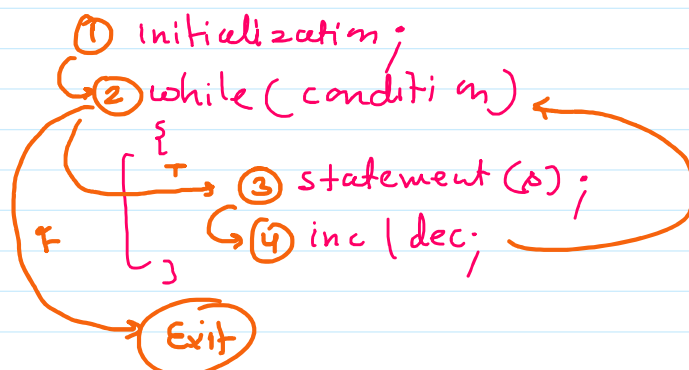 ① Initialization;
② while(condition)
{
T
③ statement(s);
F
④ inc|dec;
}
Exit